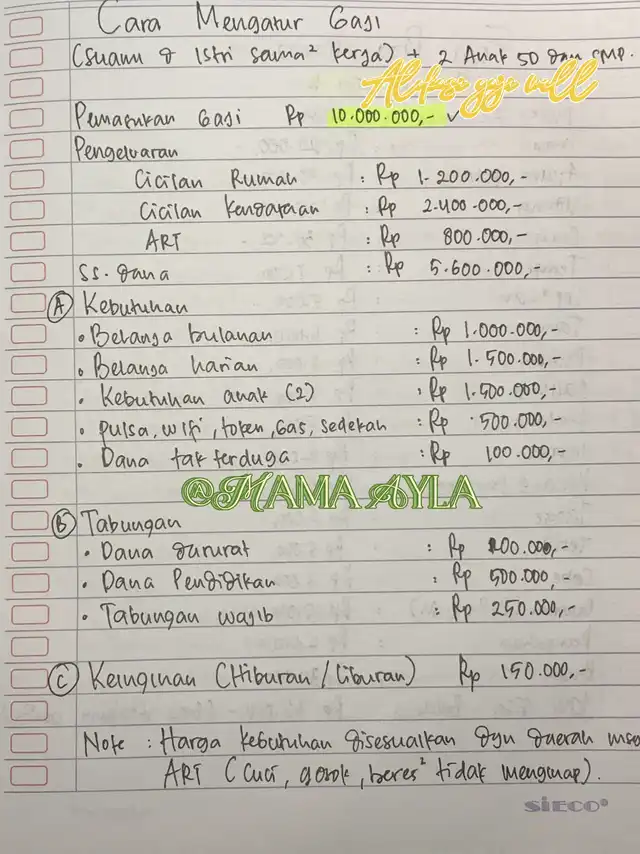 Cara Mengatur Gaji
(Suami & Istri sama² kerja) + 2 Anak SD dan SMP.
Pemasukan Gaji Rp 10.000.000,- ✓
Pengeluaran
Cicilan Rumah : Rp 1.200.000,-
Cicilan Kendaraan : Rp 2.400.000,-
ART : Rp 800.000,-
SS. dana : Rp 5.600.000,-
(A) Kebutuhan
• Belanja bulanan : Rp 1.000.000,-
• Belanja harian : Rp 1.500.000,-
• Kebutuhan anak (2) : Rp 1.500.000,-
• pulsa, wifi, token, Gas, sedekah : Rp 500.000,-
• Dana tak terduga : Rp 100.000,-
@MAMA AYLA
(B) Tabungan
• Dana darurat : Rp 200.000,-
• Dana Pendidikan : Rp 500.000,-
• Tabungan wajib : Rp 250.000,-
(C) Keinginan (Hiburan / Liburan) Rp 150.000,-
Note : Harga kebutuhan disesuaikan dgn daerah
ART (Cuci, gosok, beres² tidak menginap).
SiECO®